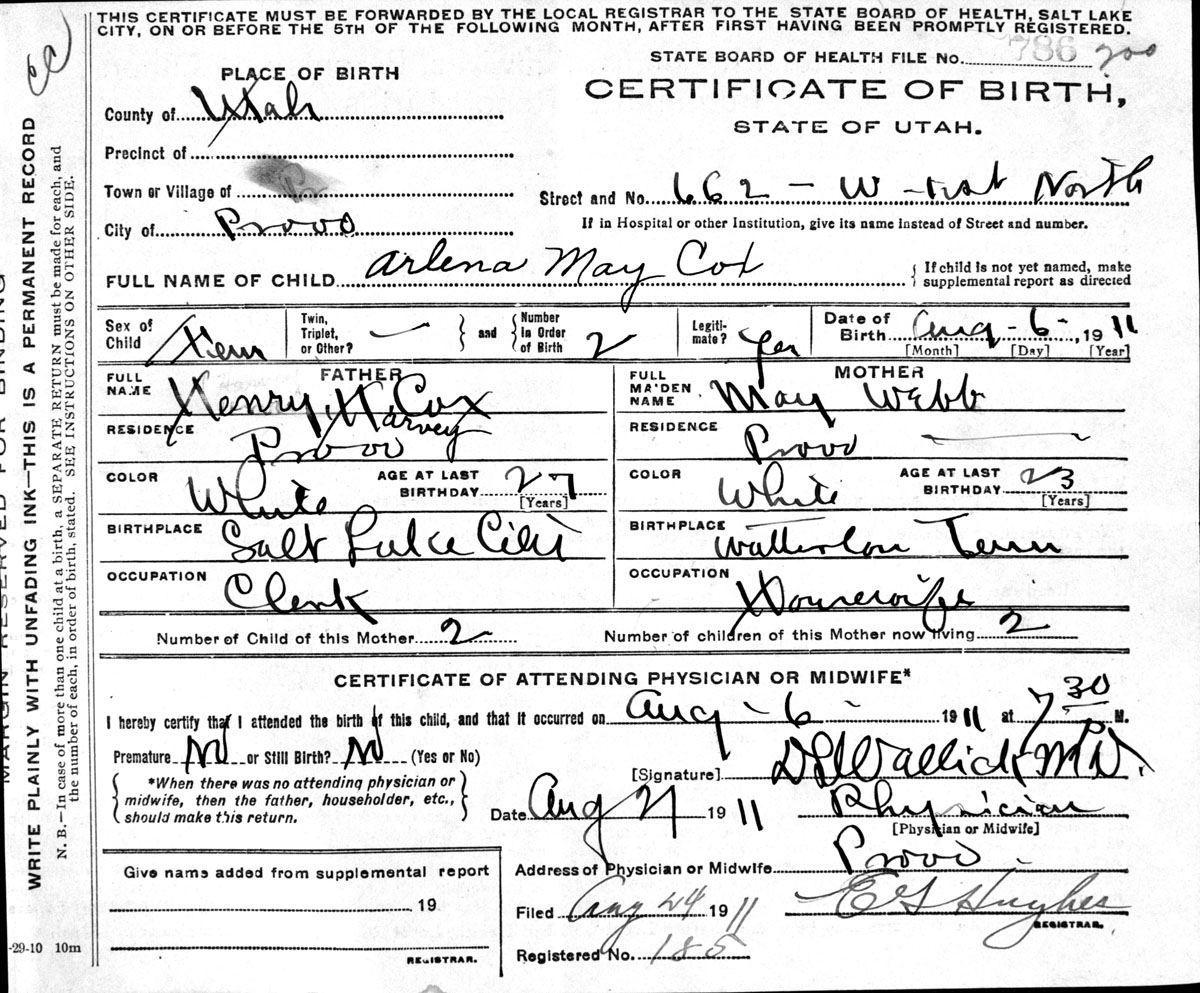 THIS CERTIFICATE MUST BE FORWARDED BY THE LOCAL REGISTRAR TO THE STATE BOARD OF HEALTH, SALT LAKE
CITY, ON OR BEFORE THE 5TH OF THE FOLLOWING MONTH, AFTER FIRST HAVING BEEN PROMPTLY REGISTERED.
STATE BOARD OF HEALTH FILE No. 786 200
PLACE OF BIRTH
CERTIFICATE OF BIRTH,
STATE OF UTAH.
County of Utah
Precinct of
Town or Village of Pr
City of Provo
Street and No. 662 - W - 1st North
If in Hospital or other Institution, give its name instead of Street and number.
FULL NAME OF CHILD Arlena May Cox
{ If child is not yet named, make
supplemental report as directed
Sex of Child Fem
Twin, Triplet, or Other? — } and { Number in Order of Birth 2
Legitimate? Yes
Date of Birth Aug - 6 -, 1911
[Month] [Day] [Year]
FATHER
FULL NAME Henry H. Cox
Harvey
RESIDENCE Provo
COLOR White
AGE AT LAST BIRTHDAY 27
[Years]
BIRTHPLACE Salt Lake City
OCCUPATION Clerk
MOTHER
FULL MAIDEN NAME May Webb
RESIDENCE Provo
COLOR White
AGE AT LAST BIRTHDAY 23
[Years]
BIRTHPLACE Tenn
OCCUPATION Housewife
Number of Child of this Mother 2
Number of children of this Mother now living 2
CERTIFICATE OF ATTENDING PHYSICIAN OR MIDWIFE*
I hereby certify that I attended the birth of this child, and that it occurred on Aug - 6 - 1911 at 7 30 P M.
Premature No or Still Birth? No (Yes or No)
{ *When there was no attending physician or
midwife, then the father, householder, etc.,
should make this return. }
[Signature] M.D.
Date Aug 21 1911
Physician
[Physician or Midwife]
Address of Physician or Midwife Provo
Filed Aug 24 1911
E G Hughes
REGISTRAR.
Registered No. 185
Give name added from supplemental report
19
REGISTRAR.
-29-10 10m
MARGIN RESERVED FOR BINDING
WRITE PLAINLY WITH UNFADING INK—THIS IS A PERMANENT RECORD
N. B.—In case of more than one child at a birth, a SEPARATE RETURN must be made for each, and
the number of each, in order of birth, stated. SEE INSTRUCTIONS ON OTHER SIDE.